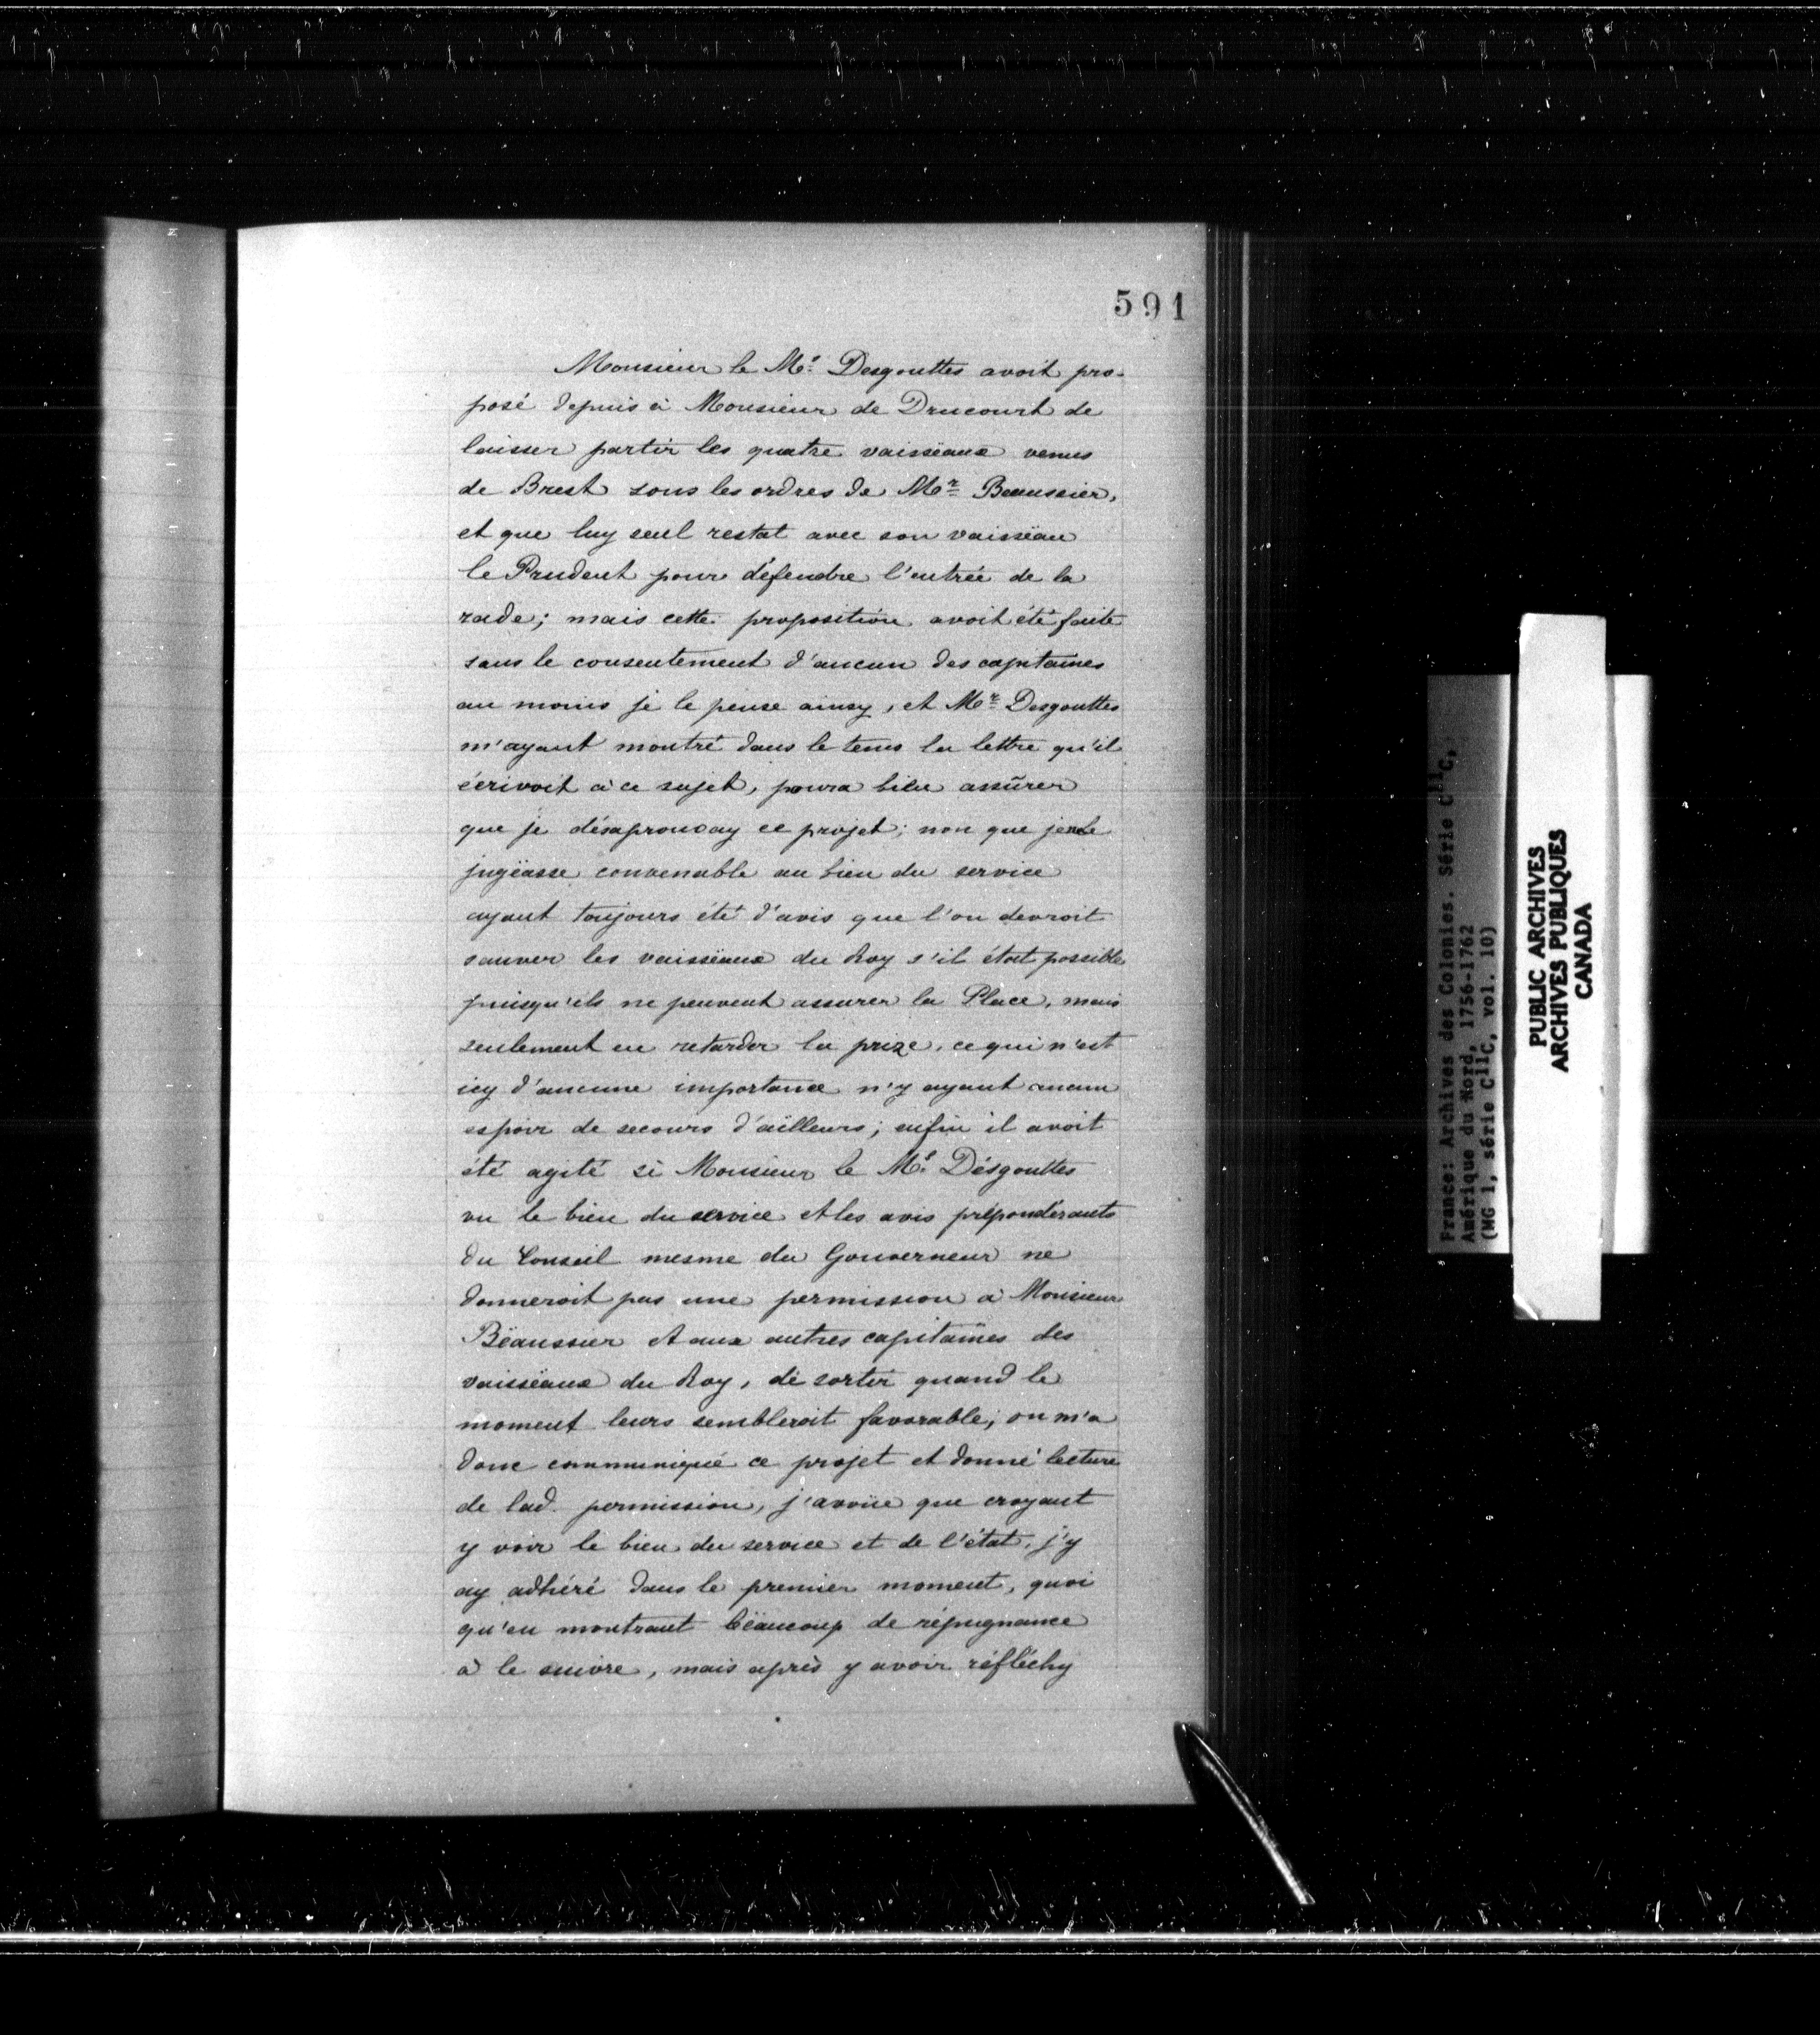 591
Monsieur le Mis Desgouttes avoit pro-
posé depuis à Monsieur de Drucourt de
laisser partir les quatre vaissëaux venus
de Brest sous les ordres de Mr Beaussier,
et que luy seul restat avec son vaissëau
le Prudent pour défendre l'entrée de la
rade; mais cette proposition avoit été faite
sans le consentement d'aucun des capitaines
au moins je le pense ainsy, et Mr Desgouttes
m'ayant montré dans le tems la lettre qu'il
écrivoit à ce sujet, poura bien assûrer
que je désaprouvay ce projet; non que je le
jugëasse convenable au bien du service
ayant toujours été d'avis que l'on devroit
sauver les vaissëaux du Roy s'il étoit possible
puisqu'ils ne peuvent assurer la Place, mais
seulement en retarder la prize, ce qui n'est
icy d'aucune importance n'y ayant aucun
espoir de secours d'ailleurs; enfin il avoit
été agité si Monsieur le Mis Désgouttes
vu le bien du service et les avis prépondérants
du Conseil mesme du Gouverneur ne
donneroit pas une permission à Monsieur
Bëaussier et aux autres capitaines des
vaissëaux du Roy, de sortir quand le
moment leurs sembleroit favorable; on m'a
donc communiqué ce projet et donné lecture
de lad. permission, j'avoüe que croyant
y voir le bien du service et de l'état, j'y
ay adhéré dans le premier moment, quoi
qu'en montrant bëaucoup de répugnance
à le suivre, mais après y avoir réfléchy
France: Archives des Colonies. Série C11C,
Amérique du Nord, 1756-1762
(MG 1, série C11C, vol. 10)
PUBLIC ARCHIVES
ARCHIVES PUBLIQUES
CANADA